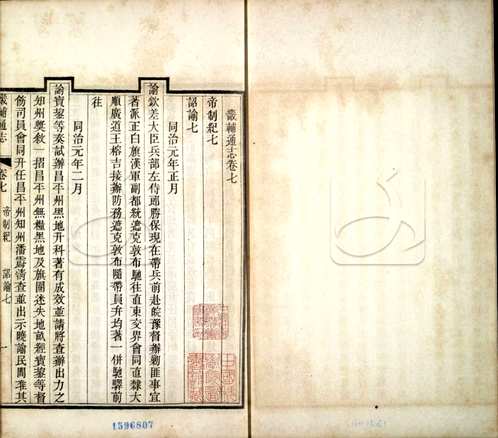 畿輔通志卷七
帝制紀七
詔諭七
同治元年正月
諭欽差大臣兵部左侍郎勝保現在帶兵前赴皖豫督辦剿匪事宜
著派正白旗漢軍副都統遮克敦布馳往直東交界會同直隸大
順廣道王榕吉接辦防務遮克敦布隨帶員弁均著一併馳驛前
往
同治元年二月
諭寶鋆等奏試辦昌平州黑地升科著有成效並請將查辦出力之
知州獎敘一摺昌平州無糧黑地及旗圈迷失地畝經寶鋆等督
飭司員會同升任昌平州知州潘霨淸查並出示曉諭民間准其
畿輔通志 卷七 帝制紀 詔諭七 一
1596807